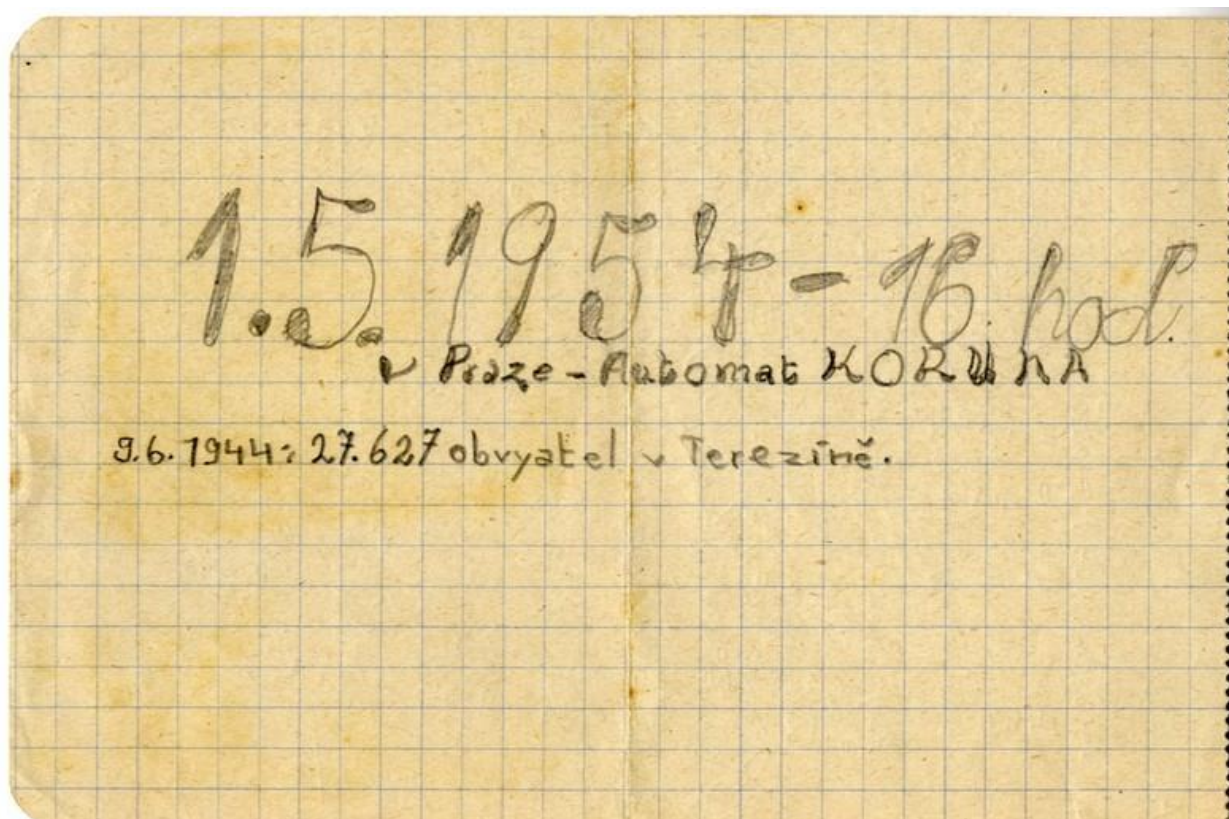 1.5.1954 - 16 hod.
v Praze - Automat KORUNA
9.6.1944: 27.627 obvyatel v Terezíně.